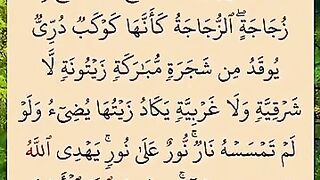 زُجَاجَةٍ ۖ ٱلزُّجَاجَةُ كَأَنَّهَا كَوْكَبٌ دُرِّىٌّ
يُوقَدُ مِن شَجَرَةٍ مُّبَـٰرَكَةٍ زَيْتُونَةٍ لَّا
شَرْقِيَّةٍ وَلَا غَرْبِيَّةٍ يَكَادُ زَيْتُهَا يُضِىٓءُ وَلَوْ
لَمْ تَمْسَسْهُ نَارٌ ۚ نُّورٌ عَلَىٰ نُورٍ ۗ يَهْدِى ٱللَّهُ